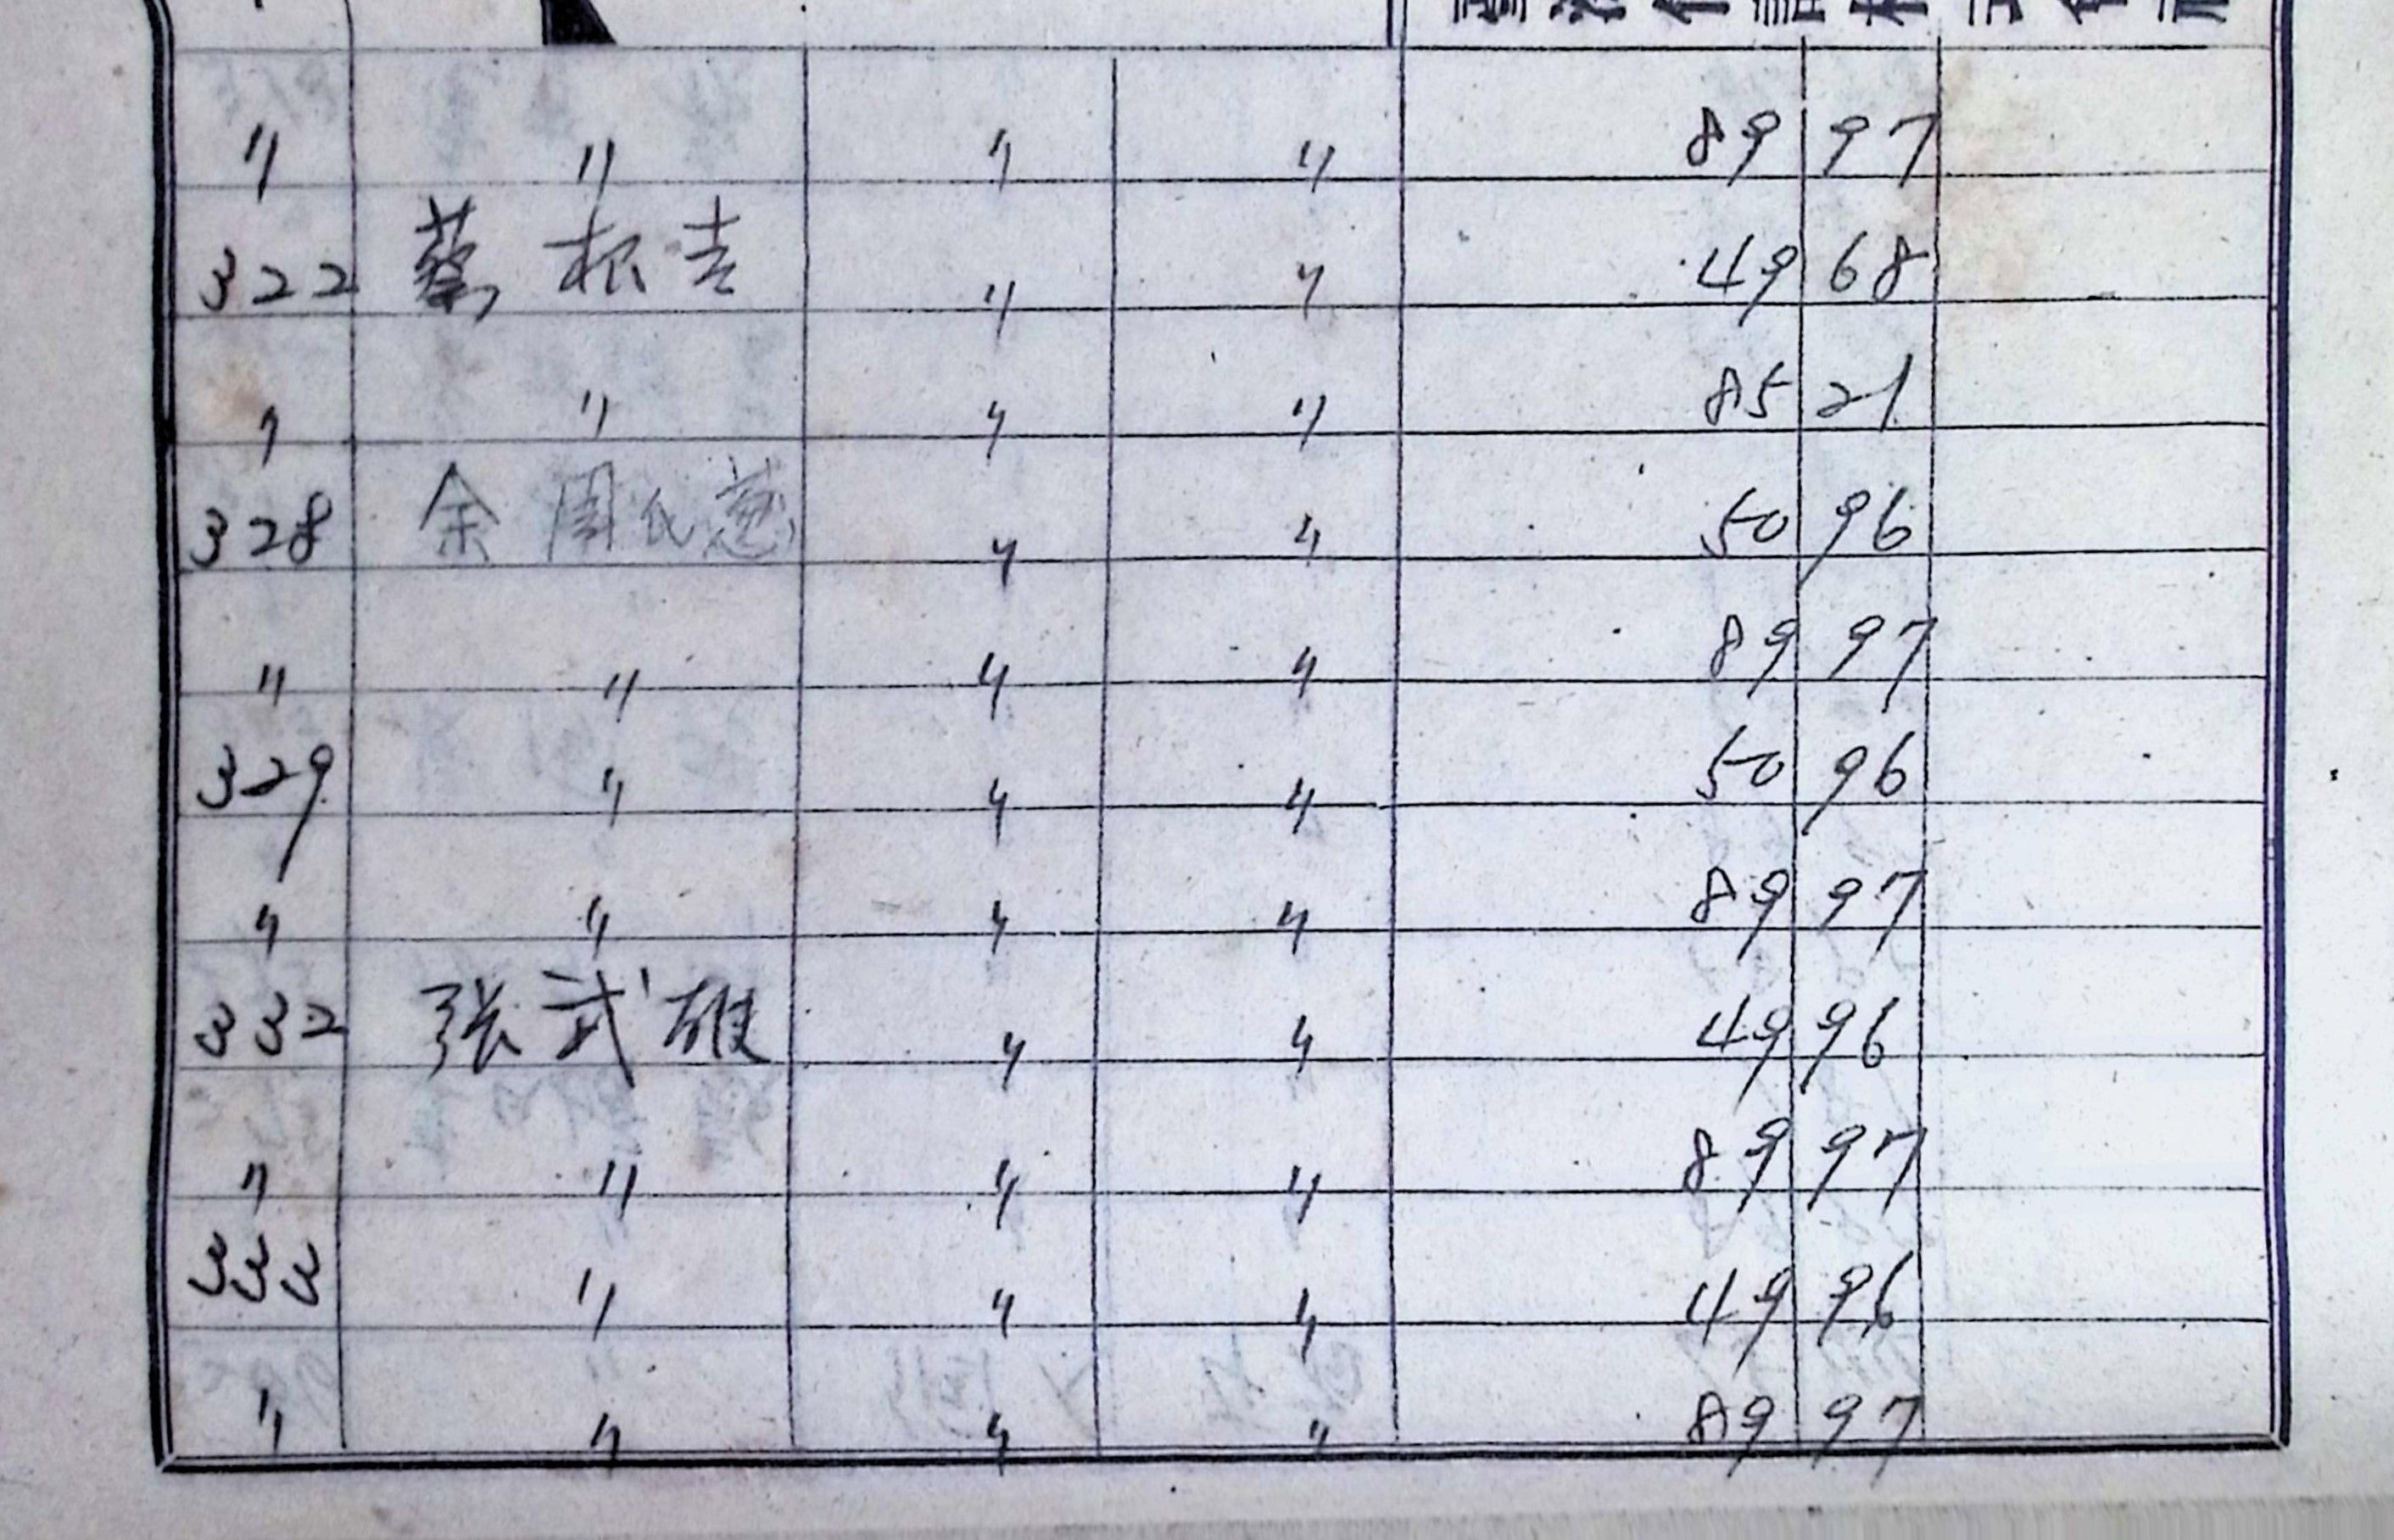 〃 〃 〃 〃 89 97
322 蔡松吉 〃 〃 49 68
〃 〃 〃 〃 85 21
328 余周氏葱 〃 〃 50 96
〃 〃 〃 〃 89 97
329 〃 〃 〃 50 96
〃 〃 〃 〃 89 97
332 張武雄 〃 〃 49 96
〃 〃 〃 〃 89 97
333 〃 〃 〃 49 96
〃 〃 〃 〃 89 97